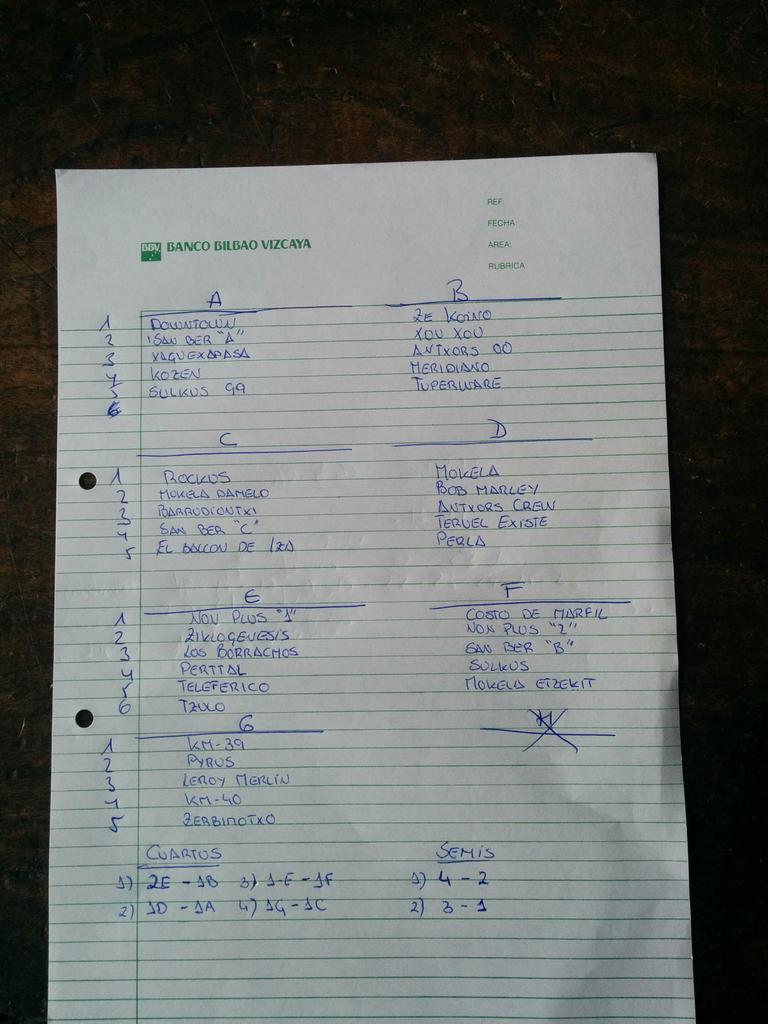 REF:
FECHA:
AREA:
RUBRICA:
BBV BANCO BILBAO VIZCAYA
A
1 DOWNTOWN
2 SAN BER "A"
3 XAGUEXAPASA
4 KOZEN
5 SULKUS 99
6
B
ZE KOINO
XOU XOU
ANTXORS OO
MERIDIANO
TUPERWARE
C
1 ROCKUS
2 MOKELA DAMELO
3 BARRUDIONTXI
4 SAN BER "C"
5 EL BALCON DE IZA
D
MOKELA
BOB MARLEY
ANTXORS CREW
TERUEL EXISTE
PERLA
E
1 NON PLUS "1"
2 ZIKLOGENESIS
3 LOS BORRACHOS
4 PERTTAL
5 TELEFERICO
6 TZULO
F
COSTO DE MARFIL
NON PLUS "2"
SAN BER "B"
SULKUS
MOKELA ETZEKIT
G
1 KM-39
2 PYRUS
3 LEROY MERLIN
4 KM-40
5 ZERBINOTXO
H
CUARTOS
1) 2E - 1B 3) 1-E - 1F
2) 1D - 1A 4) 1G - 1C
SEMIS
1) 4 - 2
2) 3 - 1